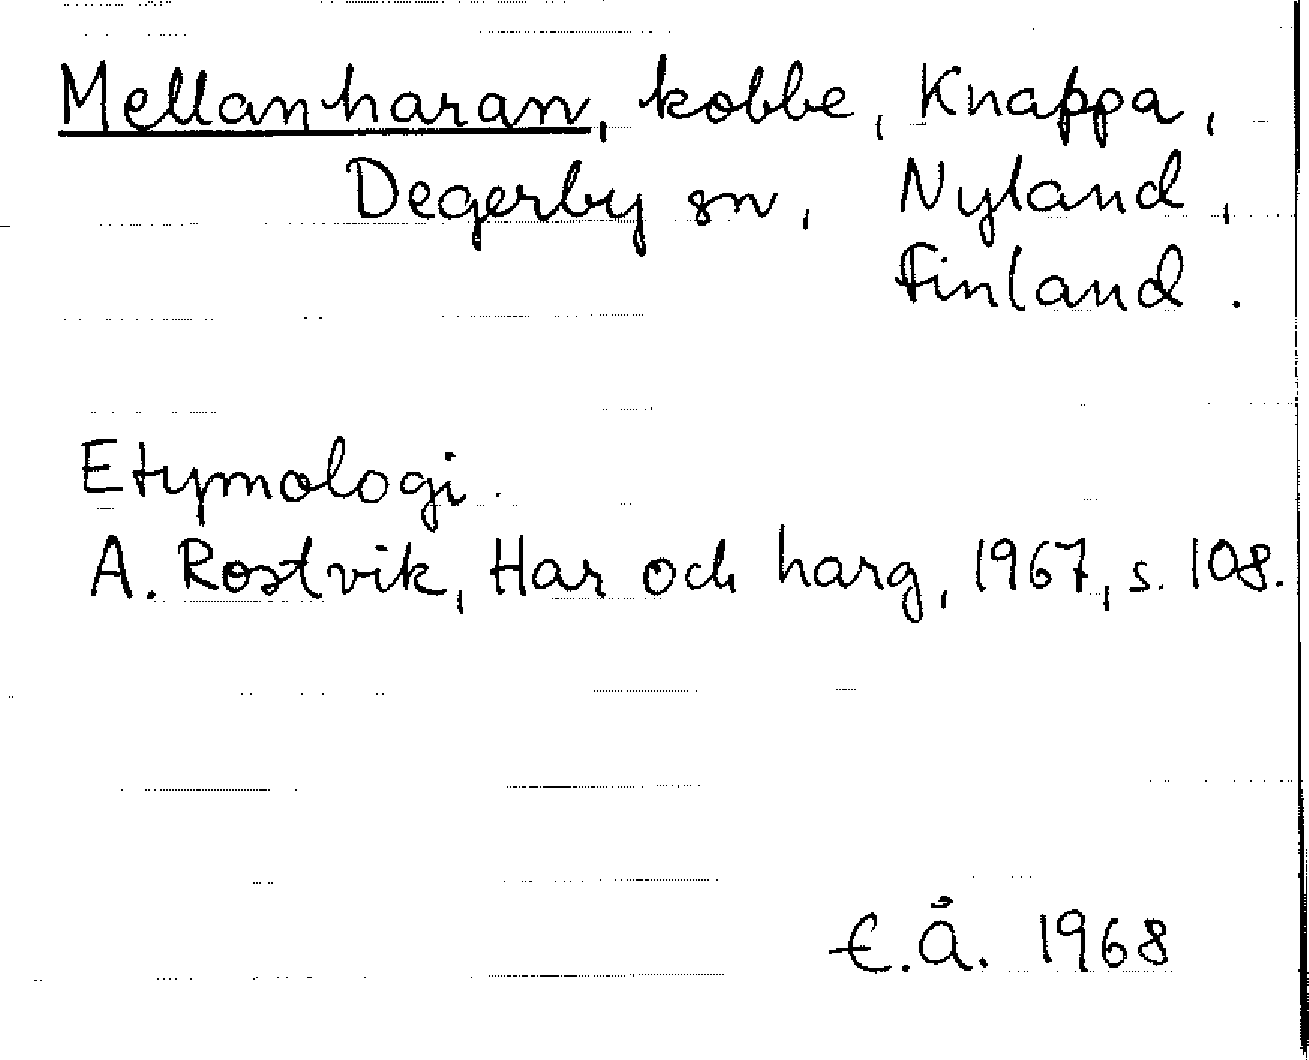 Mellanharan, kobbe, Knappa,
Degerby sn, Nyland,
Finland.
Etymologi.
A. Rostvik, Har och harg, 1967, s. 108.
E.Å. 1968